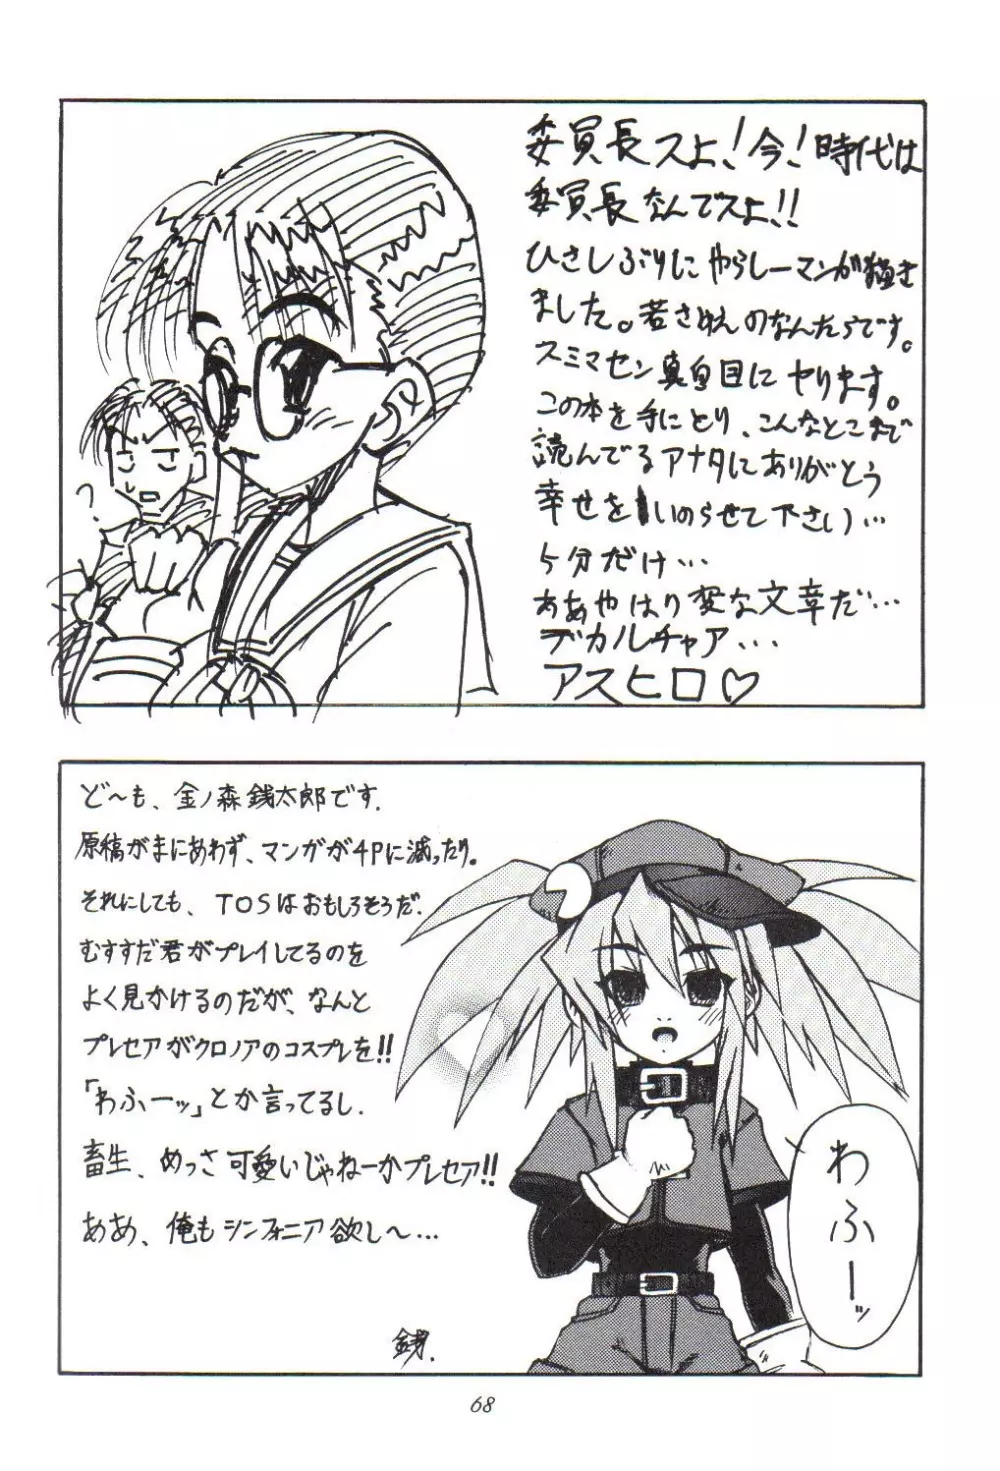 委員長スよ!今!時代は
委員長なんでスよ!!
ひさしぶりに やらしーマンが描き
ました。若さゆえのなんたらです。
スミマセン真面目にヤります。
この本を手にとり、こんなとこまで
読んでるアナタにありがとう
幸せをいのらせて下さい…
5分だけ…
ああやはり変な文章だ…
デカルチャア…
アスヒロ♡
?
ど〜も、金ノ森銭太郎です.
原稿がまにあわず、マンガが4Pに減ったり。
それにしても、TOSはおもしろそうだ.
むすすだ君がプレイしてるのを
よく見かけるのだが、なんと
プレセアがクロノアのコスプレを!!
「わふーッ」とか言ってるし.
畜生、めっさ可愛いじゃねーかプレセア!!
ああ、俺もシンフォニア欲し〜…
銭.
わふーッ
68